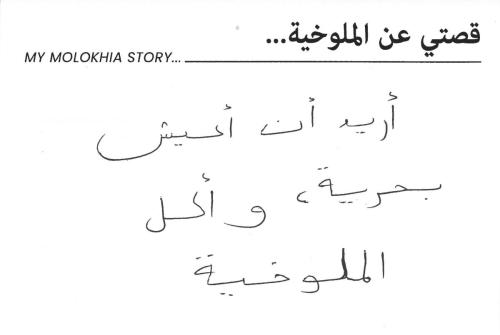 قصتي عن الملوخية...
MY MOLOKHIA STORY...
أريد أن أعيش
بحرية، و أكل
الملوخية